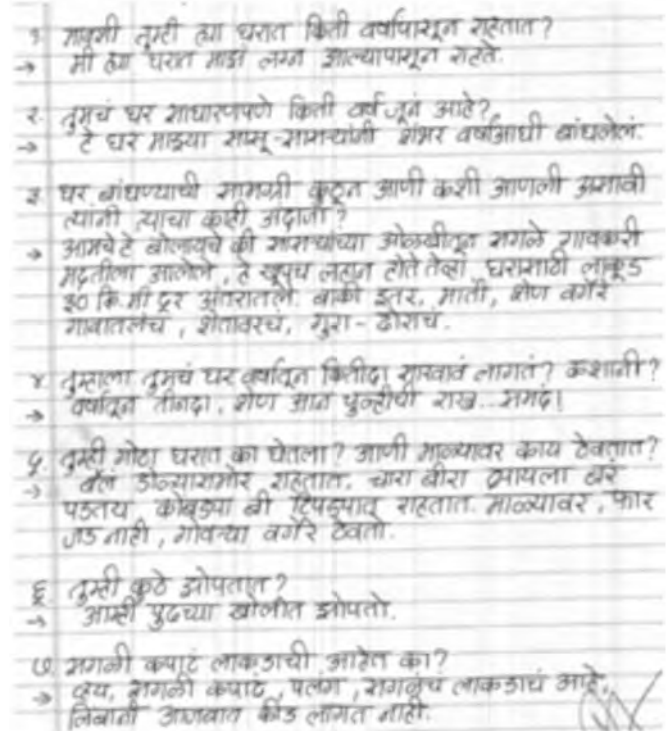 १ मावशी तुम्ही ह्या घरात किती वर्षापासून राहतात?
→ मी ह्या घरात माझं लग्न झाल्यापासून राहते.
२. तुमचं घर साधारणपणे किती वर्ष जूनं आहे?
→ हे घर माझ्या सासू-सासऱ्यांनी शंभर वर्षाआधी बांधलेलं.
३ घर बांधण्याची सामग्री कुठून आणी कशी आणली असावी
त्यांनी त्याचा काही अंदाज?
→ आमचे हे बोलायचे की सासऱ्यांच्या ओळखीतून सगळे गावकरी
मदतीला आलेले, हे खूपच लहान होते तेव्हा. घरासाठी लाकूड
३० कि.मी दूर अंतरातले. बाकी इतर, माती, शेण वगैरे
गावातलंच, शेतावरचं, गुरा-ढोराचं.
४ तुम्हाला तुमचं घर वर्षातून कितीदा सारवावं लागतं? कशानी?
→ वर्षातून तीनदा, शेण आन चुल्हीची राख.. समदं।
५ तुम्ही गोठा घरात का घेतला? आणी माळ्यावर काय ठेवतात?
→ बैल डोळ्यासमोर राहतात. चारा बीरा द्यायला बरं
पडतय, कोंबड्या बी राहतात. माळ्यावर, फार
जड नाही, गोवऱ्या वगैरे ठेवतो.
६ तुम्ही कुठे झोपतात?
→ आम्ही पुढच्या खोलीत झोपतो.
७ सगळी कपाटं लाकडाची आहेत का?
→ व्हय, सगळी कपाटं, पलंग, सगळंच लाकडाचं आहे.
कीड लागत नाही.